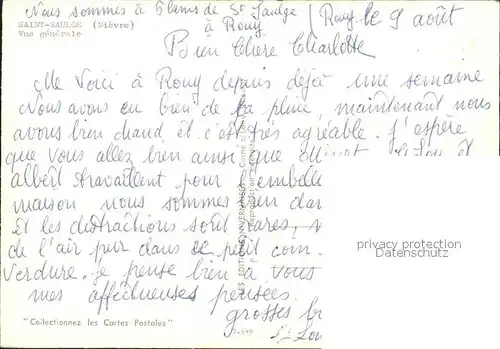 Nous sommes à 5 kms de St Saulge
à Rouy
Rouy le 9 août
SAINT-SAULGE (Nièvre)
Vue générale
Bien Chère Charlotte
Me Voici à Rouy depuis déjà une semaine
Nous avons eu bien de la pluie, maintenant nous
avons bien chaud et c'est très agréable. J'espère
que vous allez bien ainsi que et
albert travaillent pour l'embelli
maison nous sommes bien dan
Et les distractions sont rares,
de l'air pur dans ce petit coin
Verdure. je pense bien à vous
mes affectueuses pensées.
grosses b
"Collectionnez les Cartes Postales"
privacy protection
Datenschutz